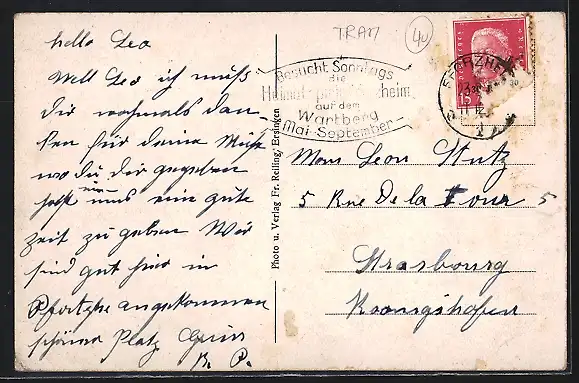 hello Leo
Well Leo ich muß
dir nochmals dan-
ken für deine Mühe
wo du dir gegeben
hast um uns eine gute
zeit zu geben Wir
sind gut hier in
Pfortzhe angekommen
schöner Platz Gruss
B. P.
TRAM
40
Besucht Sonntags
die
Heimat
heim
auf dem
Wartberg
Mai-September
PFORZHEIM
15
Photo u. Verlag Fr. Reiling, Ersingen
Mons Leon Stutz
5 Rue De la Tour 5
Strasbourg
Koenigshofen